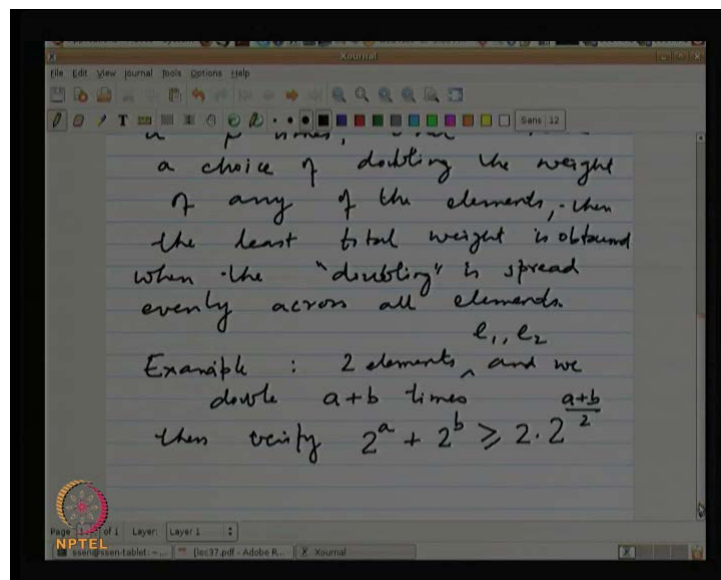 Xournal
File Edit View Journal Tools Options Help
Sans 12
times,
a choice of doubling the weight
of any of the elements, then
the least total weight is obtained
when the "doubling" is spread
evenly across all elements.
e₁, e₂
Example : 2 elements ^ and we
double a+b times
then verify 2^a + 2^b ≥ 2 · 2^((a+b)/2)
Page of 1 Layer: Layer 1
NPTEL
[lec37.pdf - Adobe R... Xournal